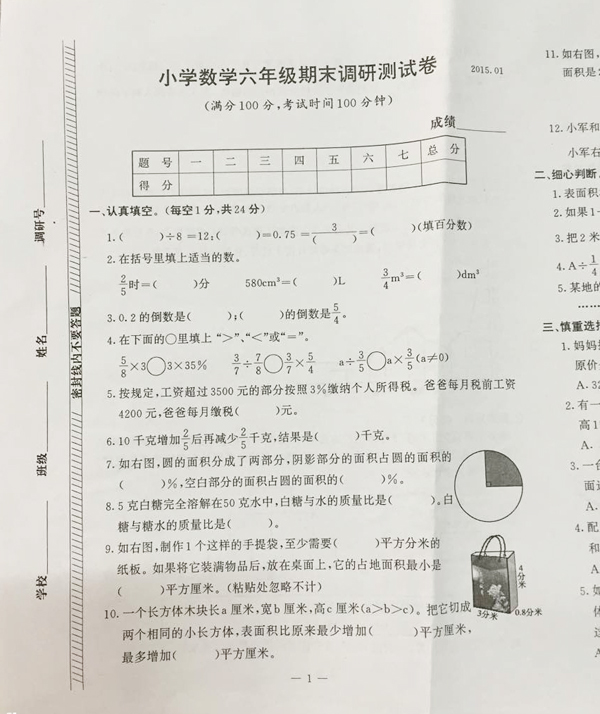 小学数学六年级期末调研测试卷 2015.01
(满分100分,考试时间100分钟)
成绩
题 号 一 二 三 四 五 六 七 总 分
得 分
一、认真填空。(每空1分,共24分)
1.( )÷8=12:( )=0.75=3/( )=( )(填百分数)
2.在括号里填上适当的数。
2/5时=( )分 580cm³=( )L 3/4m³=( )dm³
3.0.2的倒数是( );( )的倒数是5/4。
4.在下面的○里填上“>”、“<”或“=”。
5/8×3○3×35% 3/7÷7/8○3/7×5/4 a÷3/5○a×3/5(a≠0)
5.按规定,工资超过3500元的部分按照3%缴纳个人所得税。爸爸每月税前工资
4200元,爸爸每月缴税( )元。
6.10千克增加2/5后再减少2/5千克,结果是( )千克。
7.如右图,圆的面积分成了两部分,阴影部分的面积占圆的面积的
( )%,空白部分的面积占圆的面积的( )%。
8.5克白糖完全溶解在50克水中,白糖与水的质量比是( )。白
糖与糖水的质量比是( )。
9.如右图,制作1个这样的手提袋,至少需要( )平方分米的
纸板。如果将它装满物品后,放在桌面上,它的占地面积最小是
( )平方厘米。(粘贴处忽略不计)
4分米
3分米
0.8分米
10.一个长方体木块长a厘米,宽b厘米,高c厘米(a>b>c)。把它切成
两个相同的小长方体,表面积比原来最少增加( )平方厘米,
最多增加( )平方厘米。
— 1 —
学校
班级
姓名
调研号
密封线内不要答题
11.如右图,
面积是
12.小军和
小军右
二、细心判断
1.表面积
2.如果1
3.把2米
4.A÷1/4
5.某地的
三、慎重选择
1.妈妈
原价
A.32
2.有一
高1
A.
3.一台
面
A.
4.配
和
A
5.如
体
这
A.